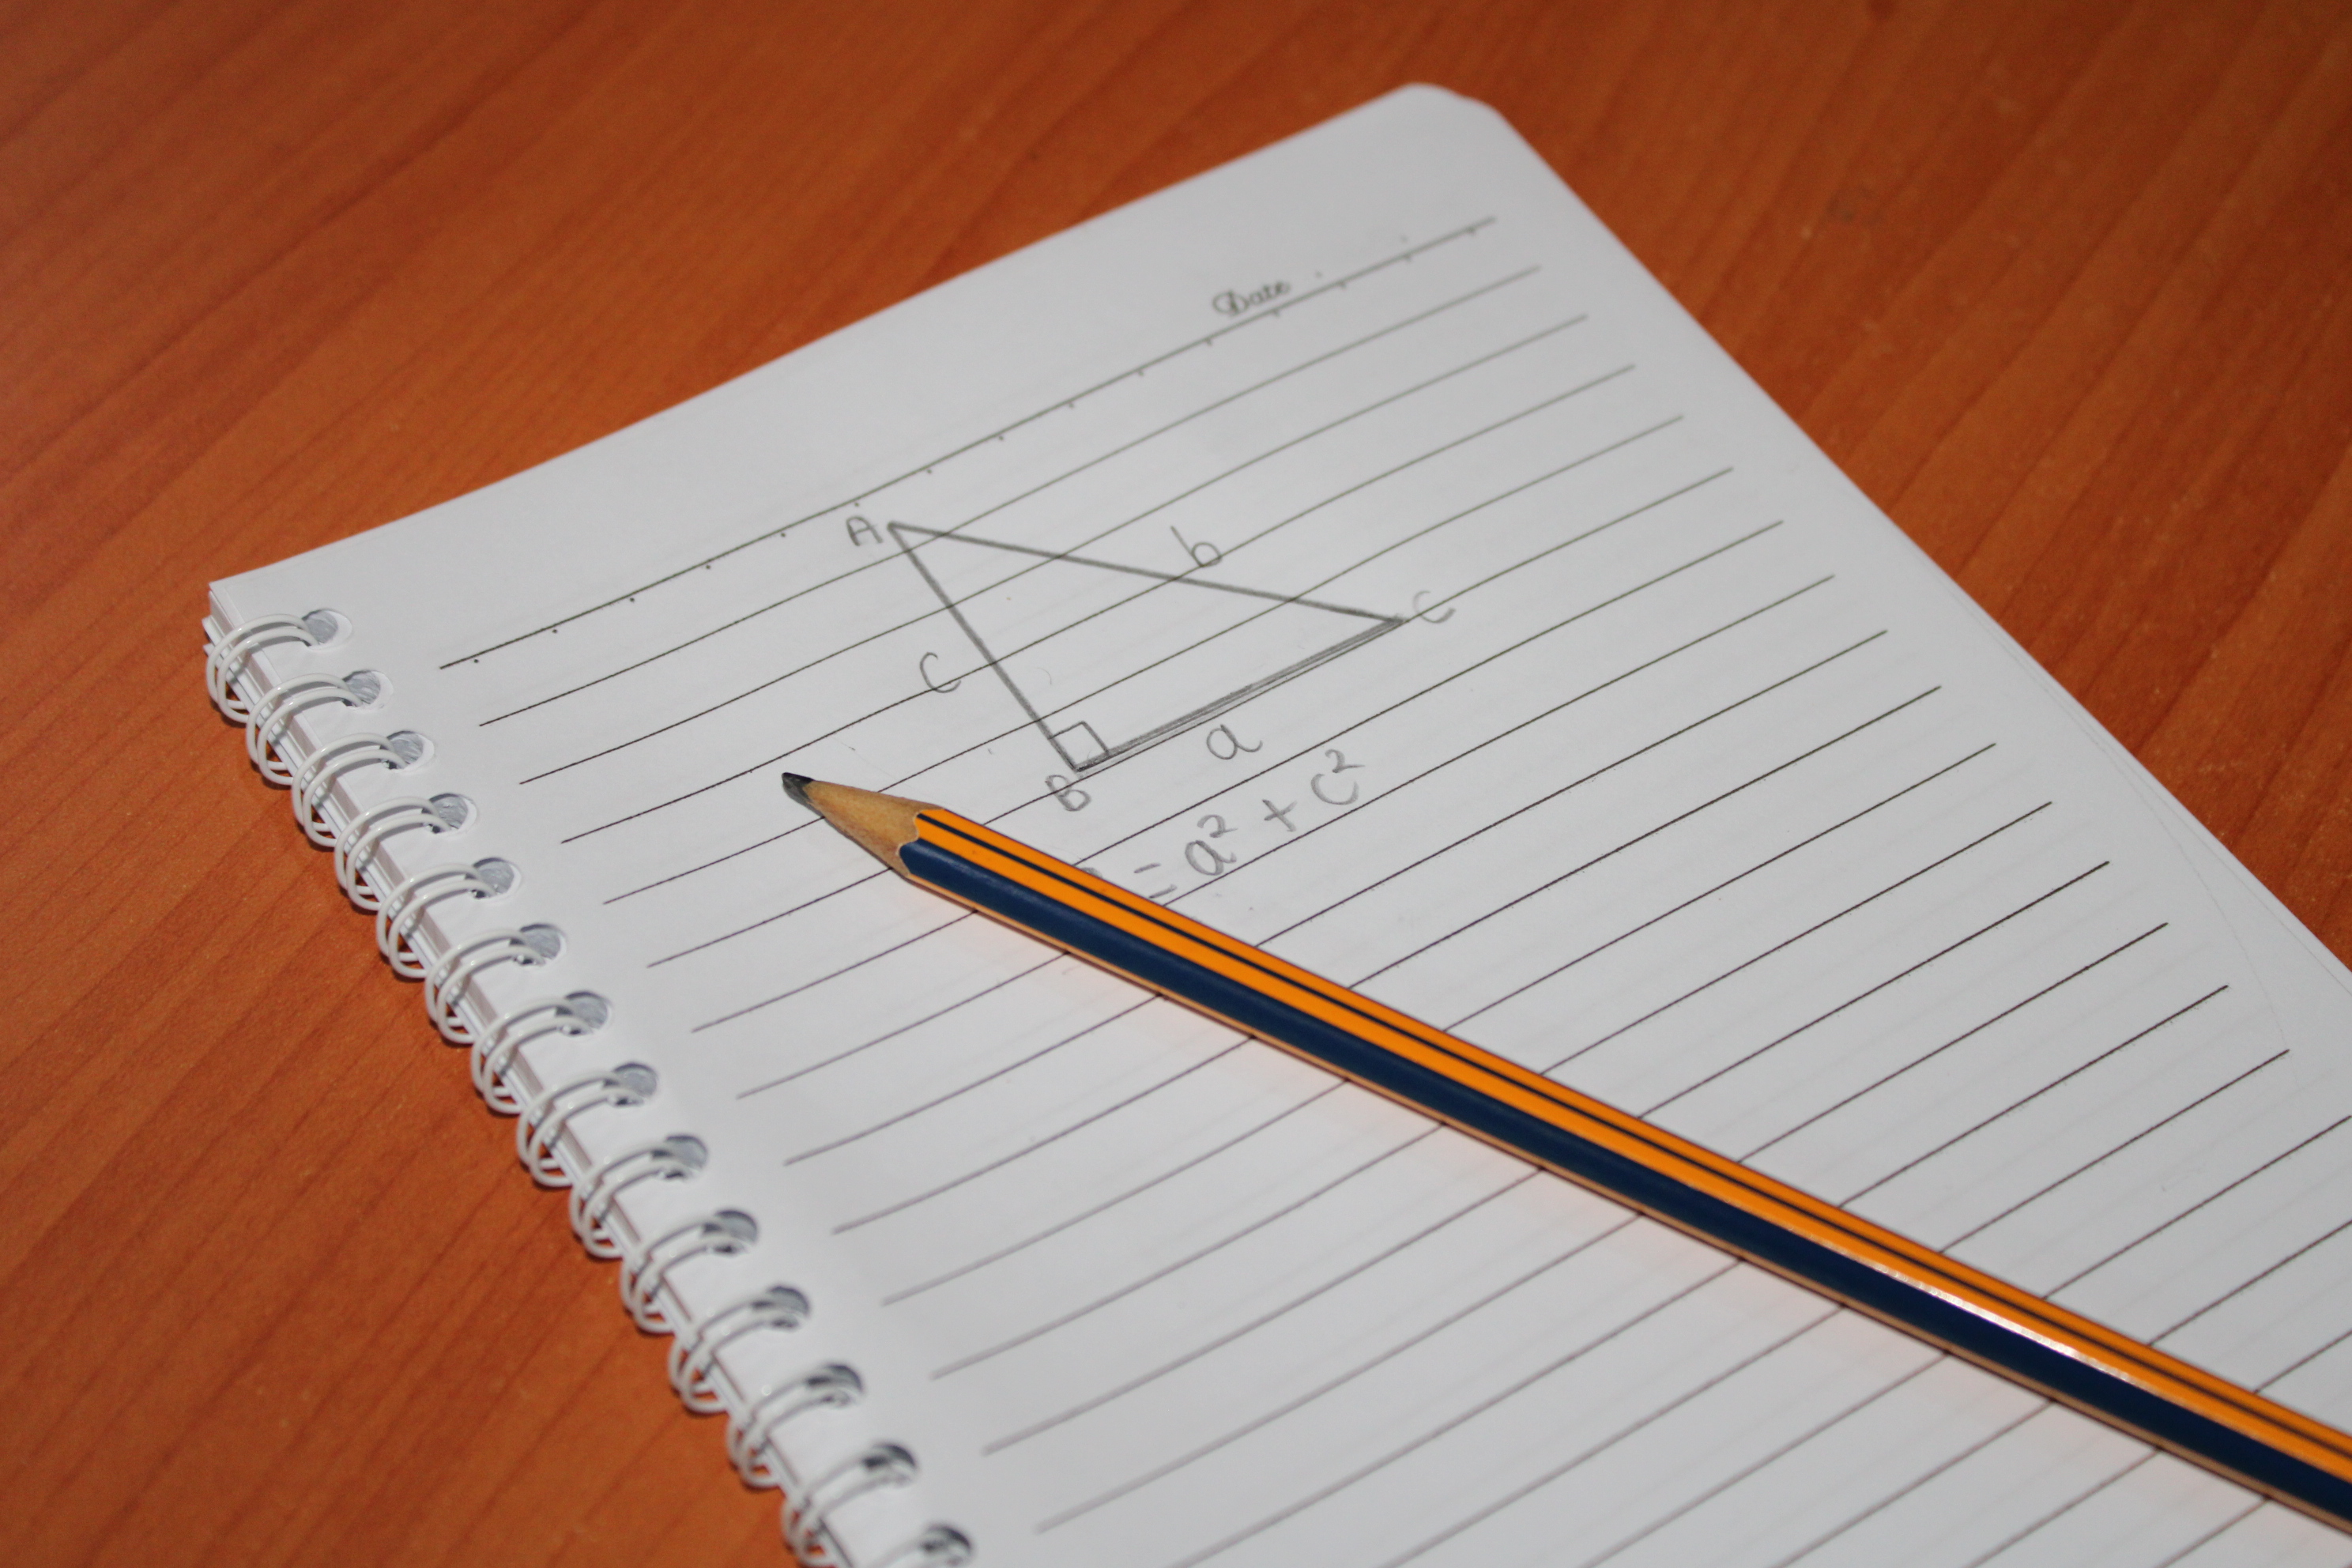 Date
A
b
C
c
B
a
= a² + c²